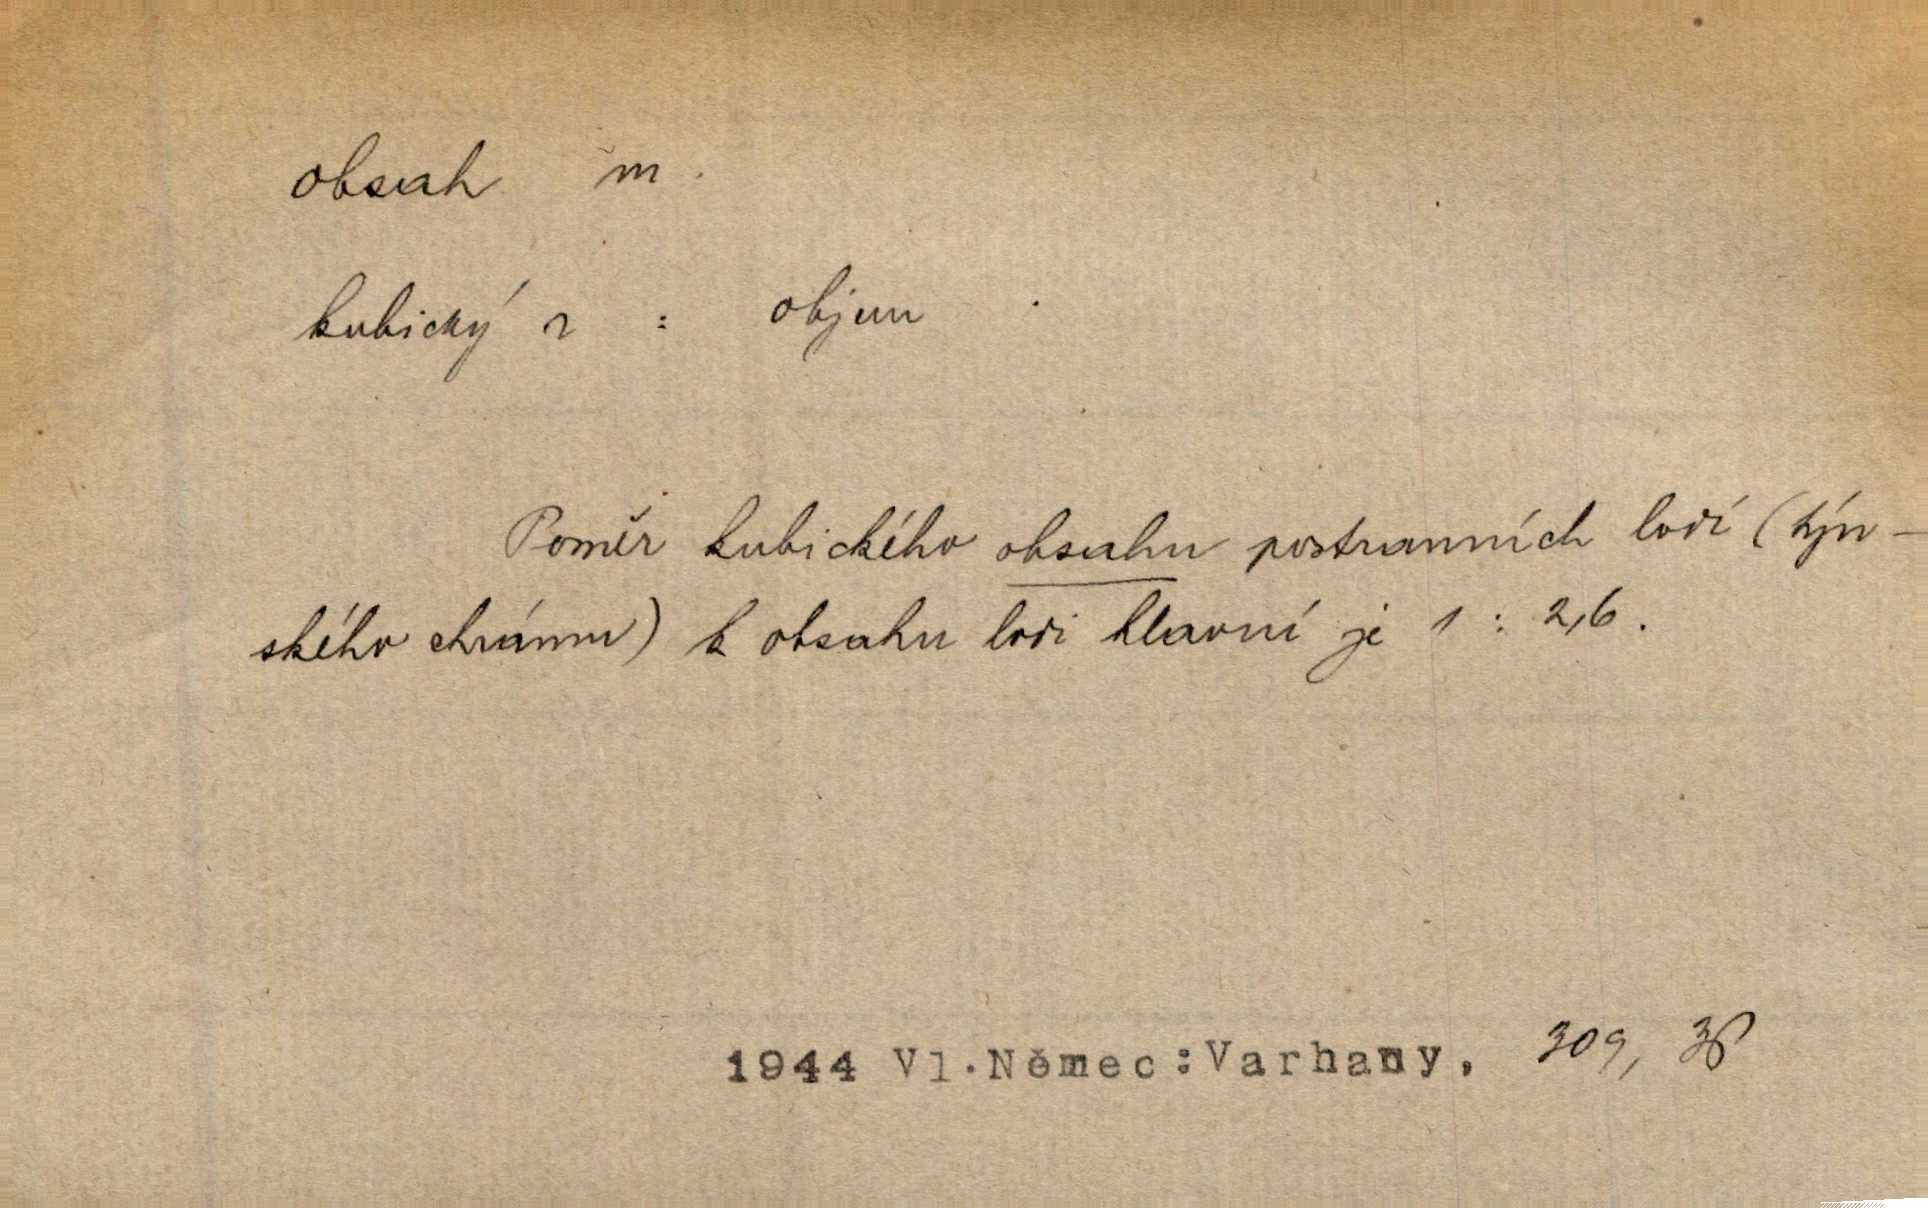 obsah m.
kubický ~ : objem
Poměr kubického obsahu postranních lodí (týn-
ského chrámu) k obsahu lodi hlavní je 1 : 2,6.
1944 Vl.Němec:Varhany, 309,